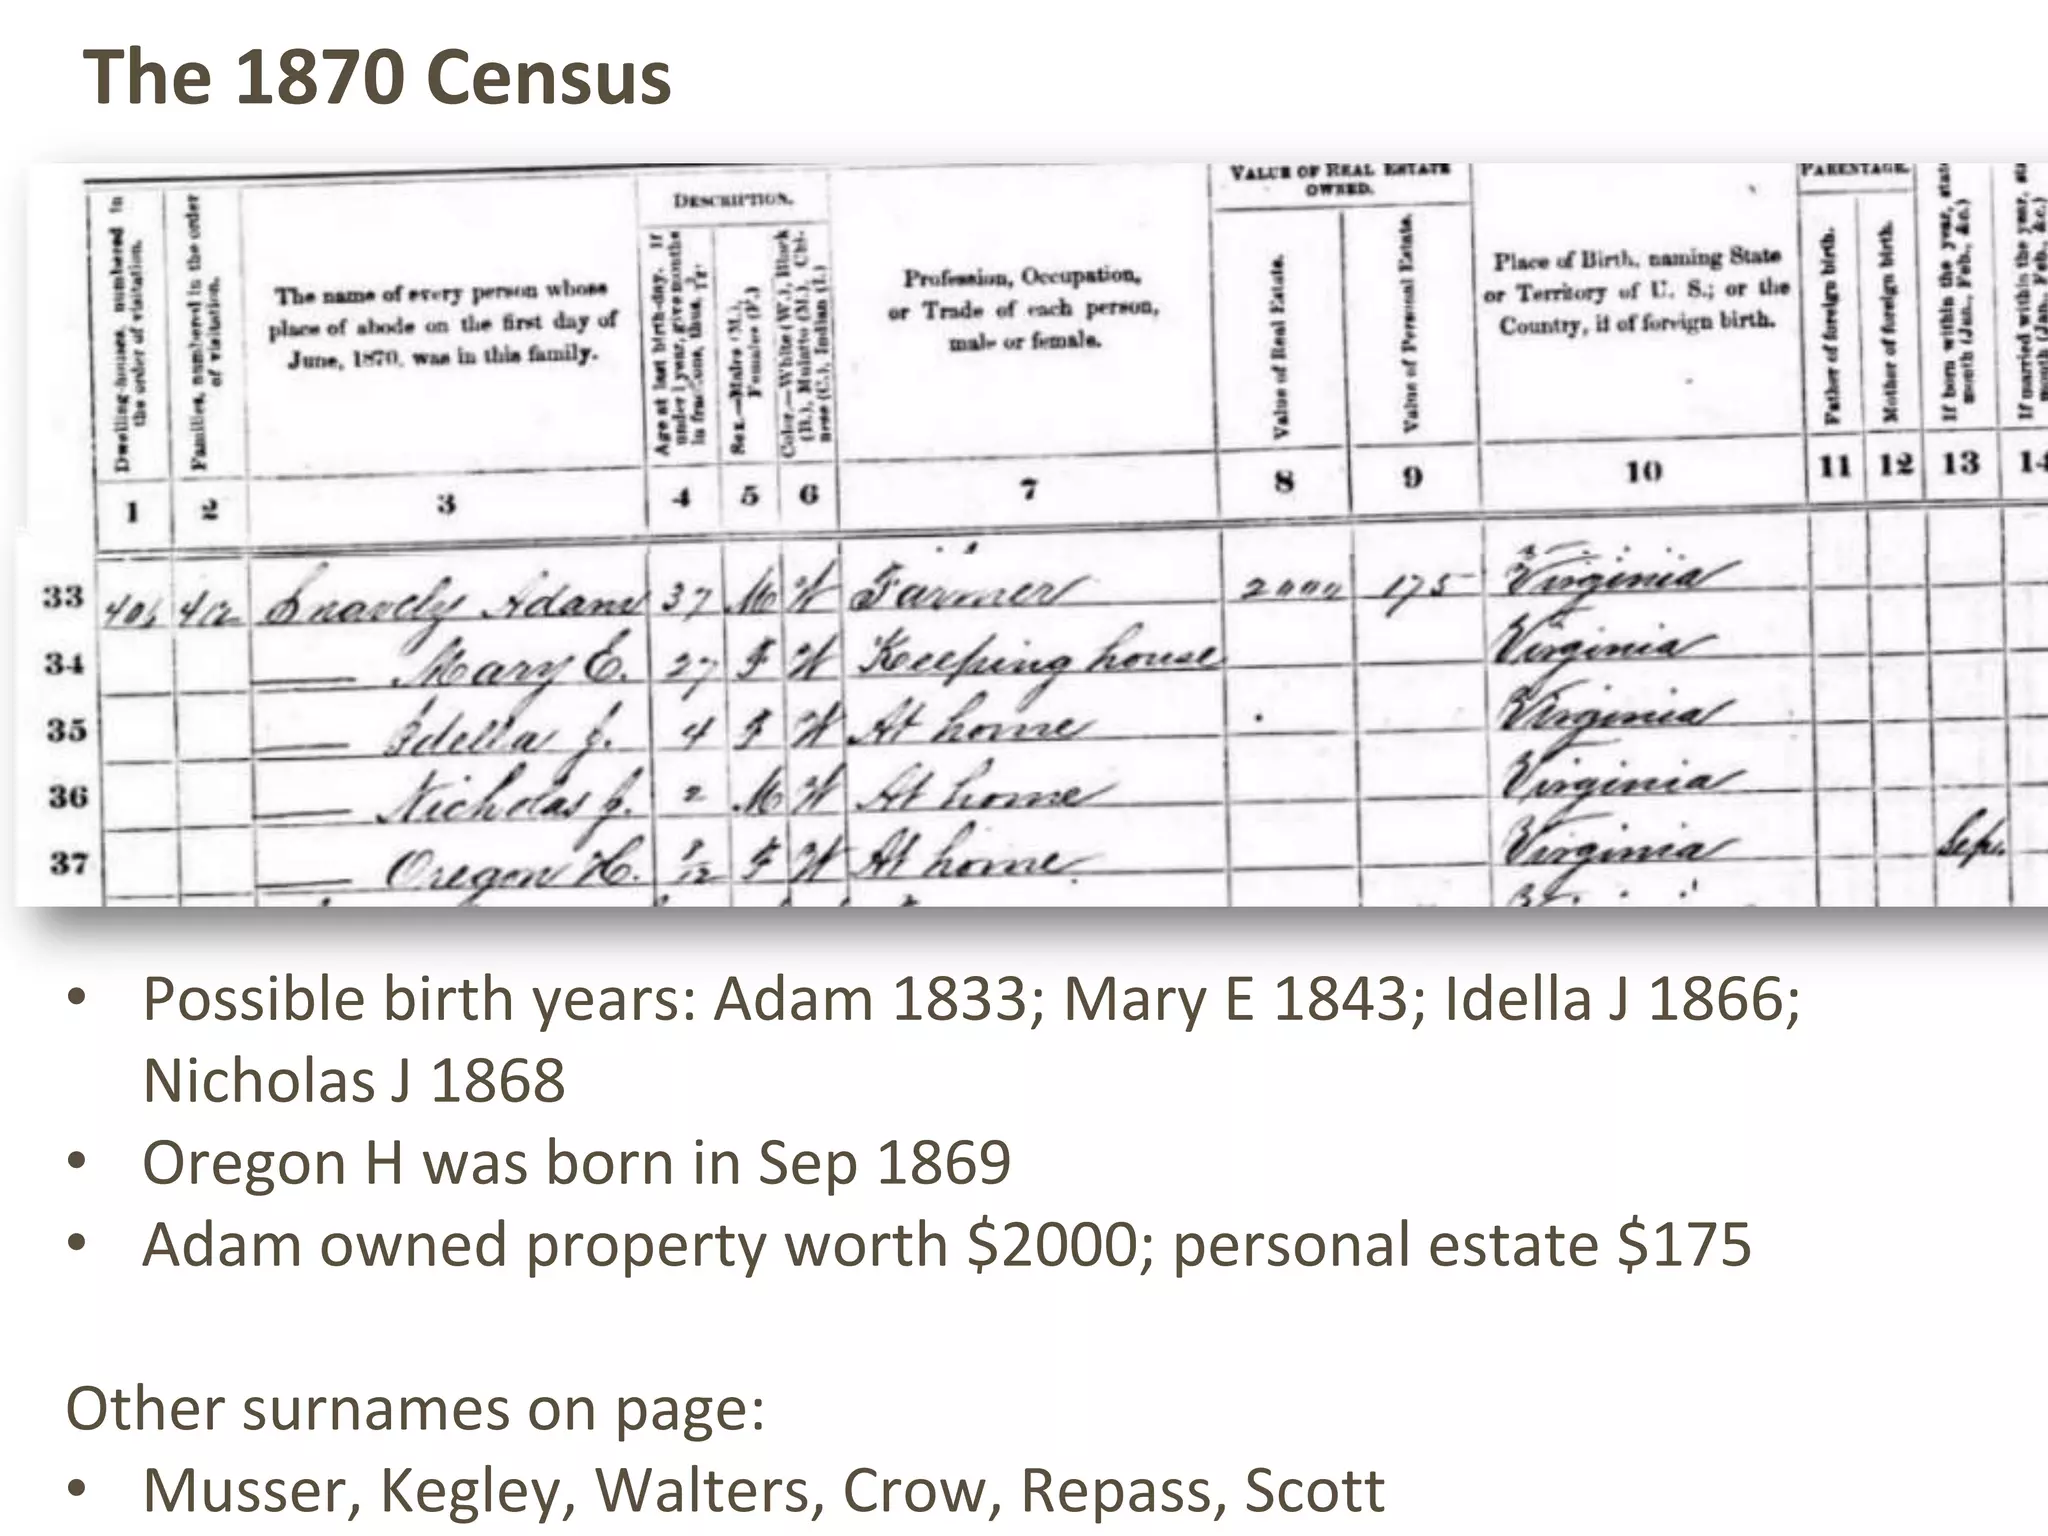 The 1870 Census
Dwelling-houses, numbered in the order of visitation.
Families, numbered in the order of visitation.
The name of every person whose
place of abode on the first day of
June, 1870, was in this family.
DESCRIPTION.
Age at last birth-day. If under 1 year, give months in fractions, thus,
Sex.—Males (M.), Females (F.)
Color.—White (W.), Black (B.), Mulatto (M.), Chinese (C.), Indian (I.)
Profession, Occupation,
or Trade of each person,
male or female.
VALUE OF REAL ESTATE
OWNED.
Value of Real Estate.
Value of Personal Estate.
Place of Birth, naming State
or Territory of U. S.; or the
Country, if of foreign birth.
PARENTAGE.
Father of foreign birth.
Mother of foreign birth.
If born within the year, state month (Jan., Feb., &c.)
If married within the year, sta month (Jan., Feb., &c.)
1 2 3 4 5 6 7 8 9 10 11 12 13 14
33 406 412 Snavely Adam 37 M W Farmer 2000 175 Virginia
34 — Mary E. 27 F W Keeping house Virginia
35 — Idella J. 4 F W At home Virginia
36 — Nicholas J. 2 M W At home Virginia
37 — Oregon H. /12 F W At home Virginia Sep.
• Possible birth years: Adam 1833; Mary E 1843; Idella J 1866;
Nicholas J 1868
• Oregon H was born in Sep 1869
• Adam owned property worth $2000; personal estate $175
Other surnames on page:
• Musser, Kegley, Walters, Crow, Repass, Scott